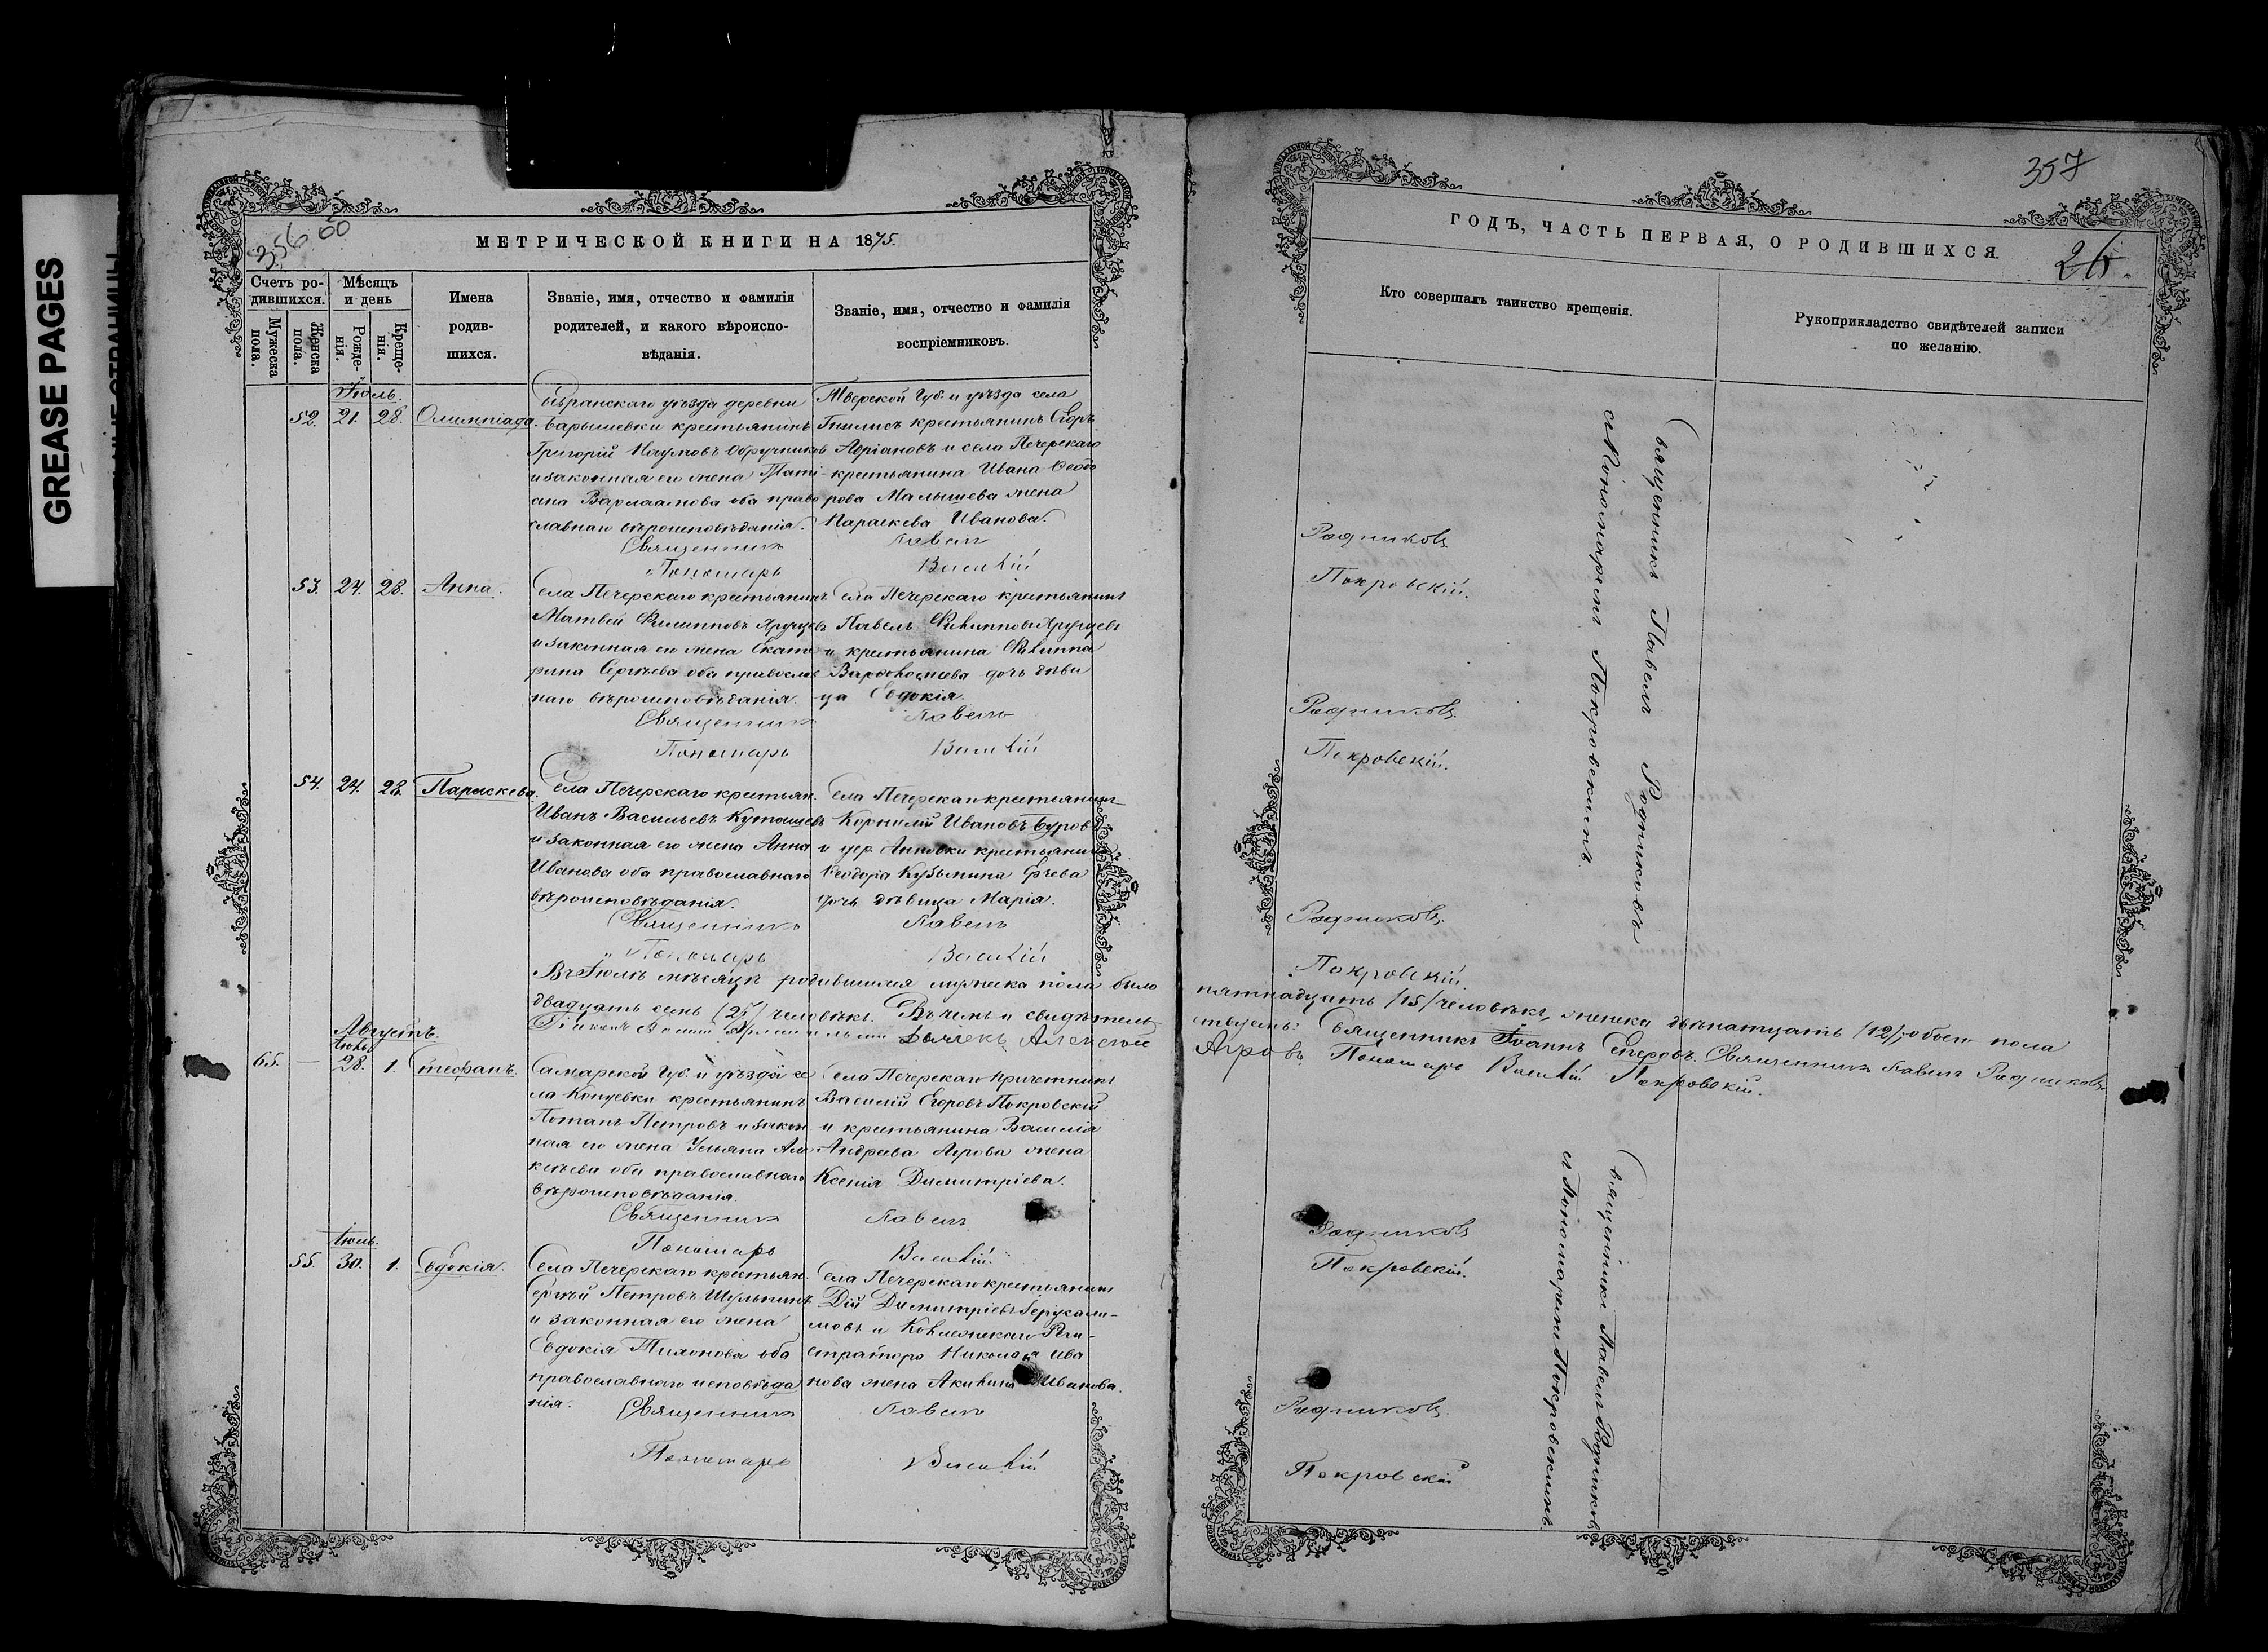 GREASE PAGES
356
МЕТРИЧЕСКОЙ КНИГИ НА 1875.
Счетъ ро-
дившихся.
Мужеска
пола.
Женска
пола.
Мѣсяцъ
и день
Рожде-
нія.
Креще-
нія.
Имена
родив-
шихся.
Званіе, имя, отчество и фамилія
родителей, и какого вѣроиспо-
вѣданія.
Званіе, имя, отчество и фамилія
воспріемниковъ.
Іюль.
52. 21. 28. Олимпіада.
Сызранскаго уѣзда деревни
Барышевки крестьянинъ
Григорій Наумовъ Обручниковъ
и законная его жена Тати-
ана Варлаамова оба право
славнаго вѣроисповѣданія.
Тверской Губ. и уѣзда села
крестьянинъ Егоръ
Адріановъ и села Печерскаго
крестьянина Ивана Ѳеодо
рова Малышева жена
Параскева Иванова.
Священникъ Павелъ
Пономарь Василій
53. 24. 28. Анна.
Села Печерскаго крестьянинъ
Матвей Филипповъ
и законная его жена Екате
рина Сергѣева оба православ
наго вѣроисповѣданія.
Села Печерскаго крестьянинъ
Павелъ Филипповъ
и крестьянина Филиппа
Варфоломеева дочь дѣви
ца Евдокія.
Священникъ Павелъ
Пономарь Василій
54. 24. 28. Параскева.
Села Печерскаго крестьян.
Иванъ Васильевъ Кутошевъ
и законная его жена Анна
Иванова оба православнаго
вѣроисповѣданія.
Села Печерскаго крестьянинъ
Корнилій Ивановъ Буровъ
и дер. Анновки крестьянина
Ѳеодора Кузьмина
дочь дѣвица Марія.
Священникъ Павелъ
Пономарь Василій
Въ Іюлѣ мѣсяцѣ родившихся мужеска пола было
двадцать семь (27) человѣкъ. Въ чемъ и свидѣтель
Дьячекъ Алексѣй
Августъ.
Іюль
65. — 28. 1. Стефанъ.
Самарской Губ. и уѣзда се
ла крестьянинъ
Потапъ Петровъ и закон
ная его жена Ульяна Але
ксѣева оба православнаго
вѣроисповѣданія.
Села Печерскаго причетникъ
Василій Егоровъ Покровскій
и крестьянина Василія
Андреева Агрова жена
Ксенія Димитріева.
Священникъ Павелъ
Пономарь Василій
Іюль.
55. 30. 1. Евдокія.
Села Печерскаго крестьян.
Сергѣй Петровъ Шульпинъ
и законная его жена
Евдокія Тихонова оба
православнаго исповѣда
нія.
Села Печерскаго крестьянинъ
Дій Димитріевъ Іерусали-
мовъ и Коллежскаго Реги-
стратора Николая Ива
нова жена Акилина Иванова.
Священникъ Павелъ
Пономарь Василій
357
ГОДЪ, ЧАСТЬ ПЕРВАЯ, О РОДИВШИХСЯ.
26.
Кто совершалъ таинство крещенія.
Рукоприкладство свидѣтелей записи
по желанію.
Священникъ Павелъ Родниковъ
съ Пономаремъ Покровскимъ.
Родниковъ
Покровскій.
Родниковъ.
Покровскій.
Родниковъ.
Покровскій.
пятнадцать (15) человѣкъ, женска двѣнатцать (12), обоего пола
ствуемъ: Священникъ Іоаннъ Егоровъ. Священникъ Павелъ Родниковъ
Агровъ. Пономарь Василій Покровскій.
Священникъ Павелъ Родниковъ
съ Пономаремъ Покровскимъ.
Родниковъ
Покровскій.
Родниковъ.
Покровскій